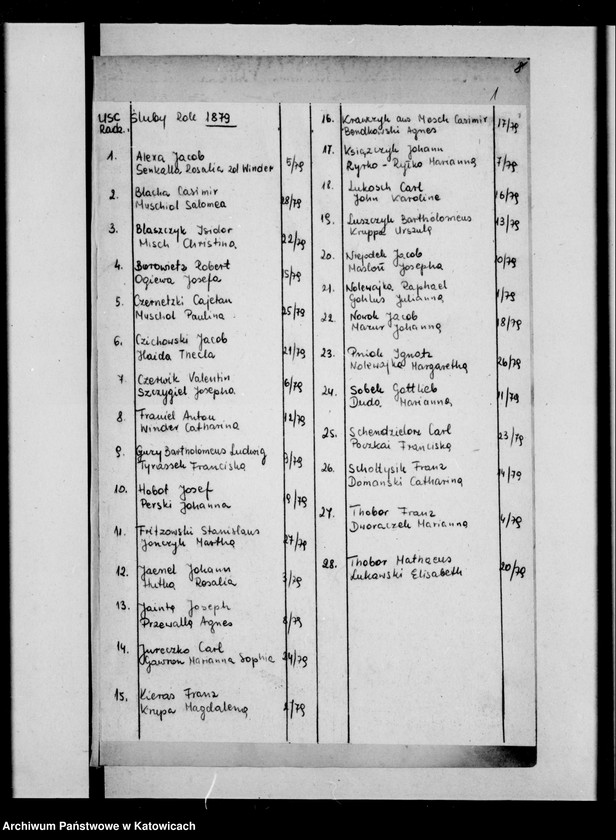 8
1
USC Śluby Rok 1879
Radz.
1. Alexa Jacob
Senkalla Rosalia zd Winder 5/79
2. Blacha Casimir
Muschiol Salomea 28/79
3. Blaszczyk Isidor
Misch Christina 22/79
4. Borowietz Robert
Ogiewa Josefa 15/79
5. Czernetzki Cajetan
Muschol Paulina 25/79
6. Czichowski Jacob
Haida Thecla 21/79
7. Czerwik Valentin
Szczygiel Josepha 6/79
8. Franiel Anton
Winder Catharina 12/79
9. Guzy Bartholomeus Ludwig
Tyrassek Franciska 9/79
10. Hobot Josef
Perski Johanna 19/79
11. Fritzowski Stanislaus
Jonczyk Martha 27/79
12. Jaenel Johann
Hutka Rosalia 3/79
13. Jainta Joseph
Przewalla Agnes 8/79
14. Jureczko Carl
Gawron Marianna Sophia 24/79
15. Kieras Franz
Krupa Magdalena 2/79
16. Krawczyk aus Mosch Casimir
Bendkowski Agnes 17/79
17. Książczyk Johann
Ryrko - Ryłko Marianna 7/79
18. Lukosch Carl
John Karoline 16/79
19. Luszczyk Bartholomeus
Kruppa Urszula 13/79
20. Niejodek Jacob
Masloń Josepha 10/79
21. Nolewajka Raphael
Gohlus Julianna 1/79
22. Nowok Jacob
Mazur Johanna 18/79
23. Pniok Ignatz
Nolewajka Margaretha 26/79
24. Sobek Gottlieb
Duda Marianna 11/79
25. Schendzielorz Carl
Poczkai Franciska 23/79
26. Scholtysik Franz
Domanski Catharina 14/79
27. Thobor Franz
Dworaczek Marianna 4/79
28. Thobor Mathaeus
Lukawski Elisabeth 20/79
Archiwum Państwowe w Katowicach